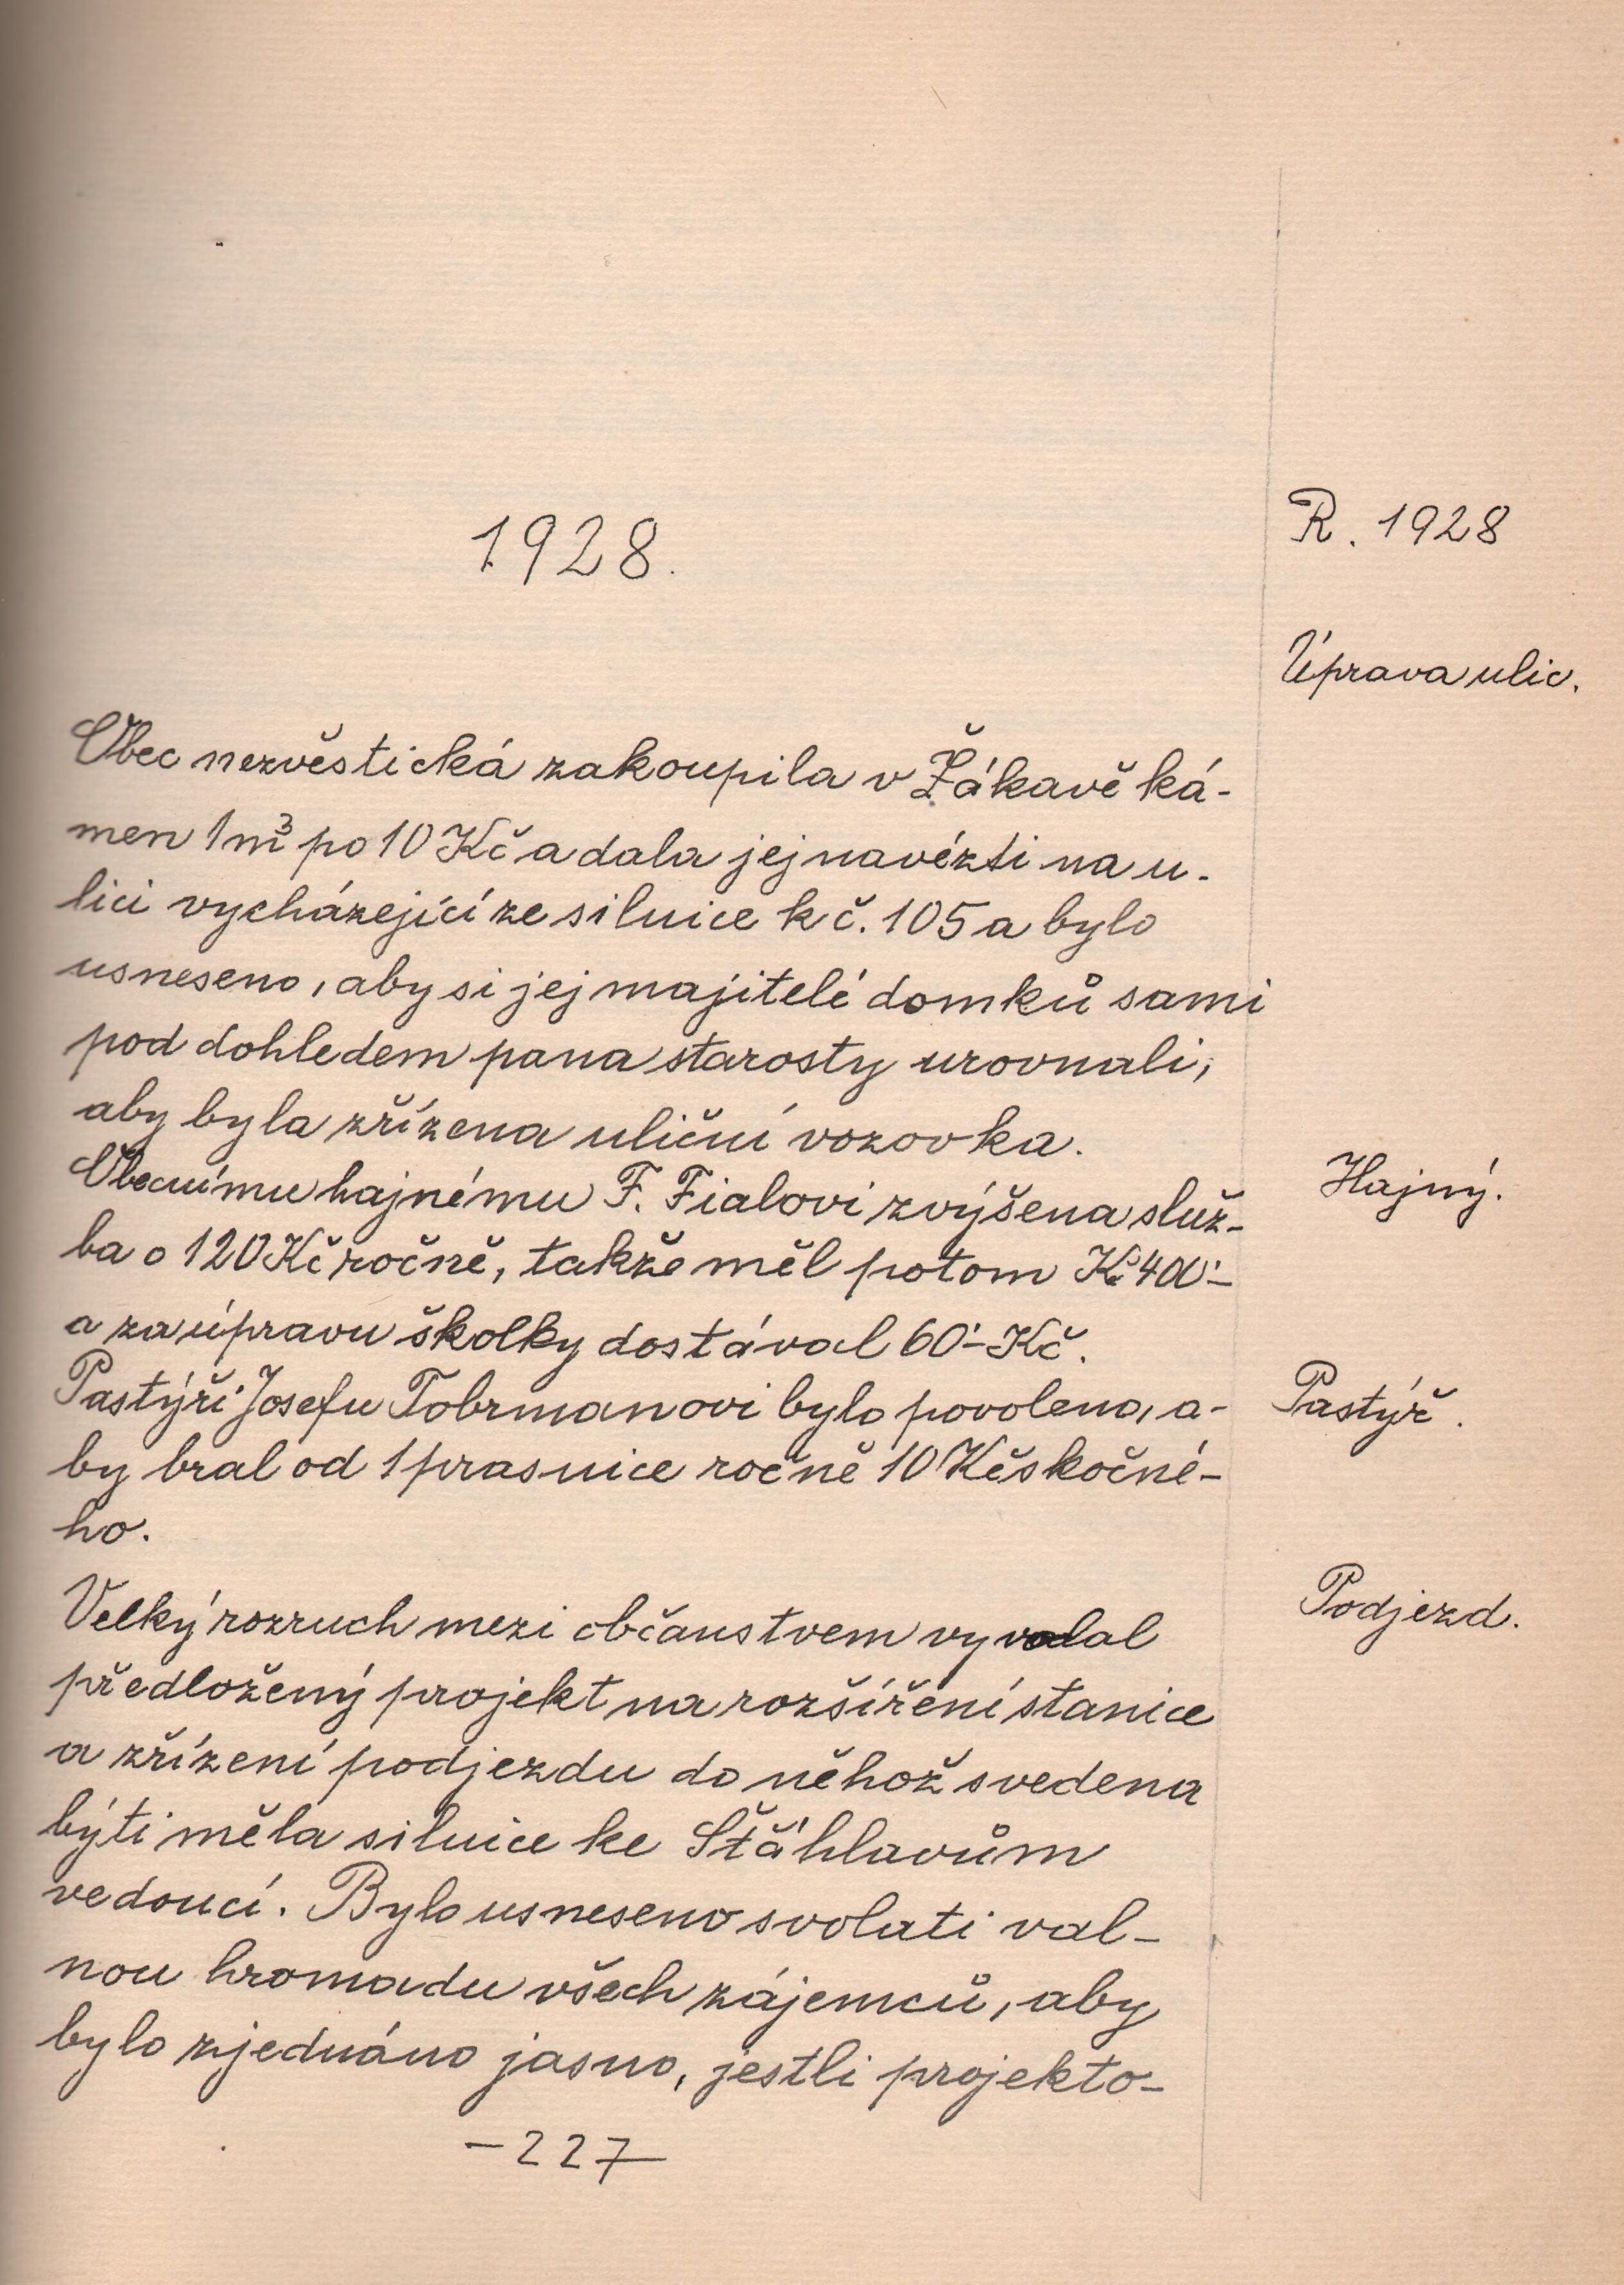 R. 1928
1928.
Úprava ulic.
Obec nezvěstická zakoupila v Žákavě ká-
men 1 m³ po 10 Kč a dala jej navézti na u-
lici vycházející ze silnice k č. 105 a bylo
usneseno, aby si jej majitelé domků sami
pod dohledem pana starosty urovnali,
aby byla zřízena uliční vozovka.
Hajný.
Obecnímu hajnému F. Fialovi zvýšena služ-
ba o 120 Kč ročně, takže měl potom Kč 400·-
a za úpravu školky dostával 60·- Kč.
Pastýř.
Pastýři Josefu Tobrmanovi bylo povoleno, a-
by bral od 1 prasnice ročně 10 Kč skočné-
ho.
Podjezd.
Velký rozruch mezi občanstvem vyvolal
předložený projekt na rozšíření stanice
a zřízení podjezdu do něhož svedena
býti měla silnice ke Štáhlavům
vedoucí. Bylo usneseno svolati val-
nou hromadu všech zájemců, aby
bylo zjednáno jasno, jestli projekto-
-227-